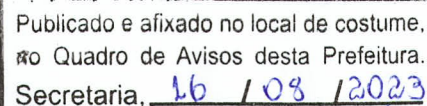 Publicado e afixado no local de costume,
no Quadro de Avisos desta Prefeitura.
Secretaria, 16 / 08 / 2023